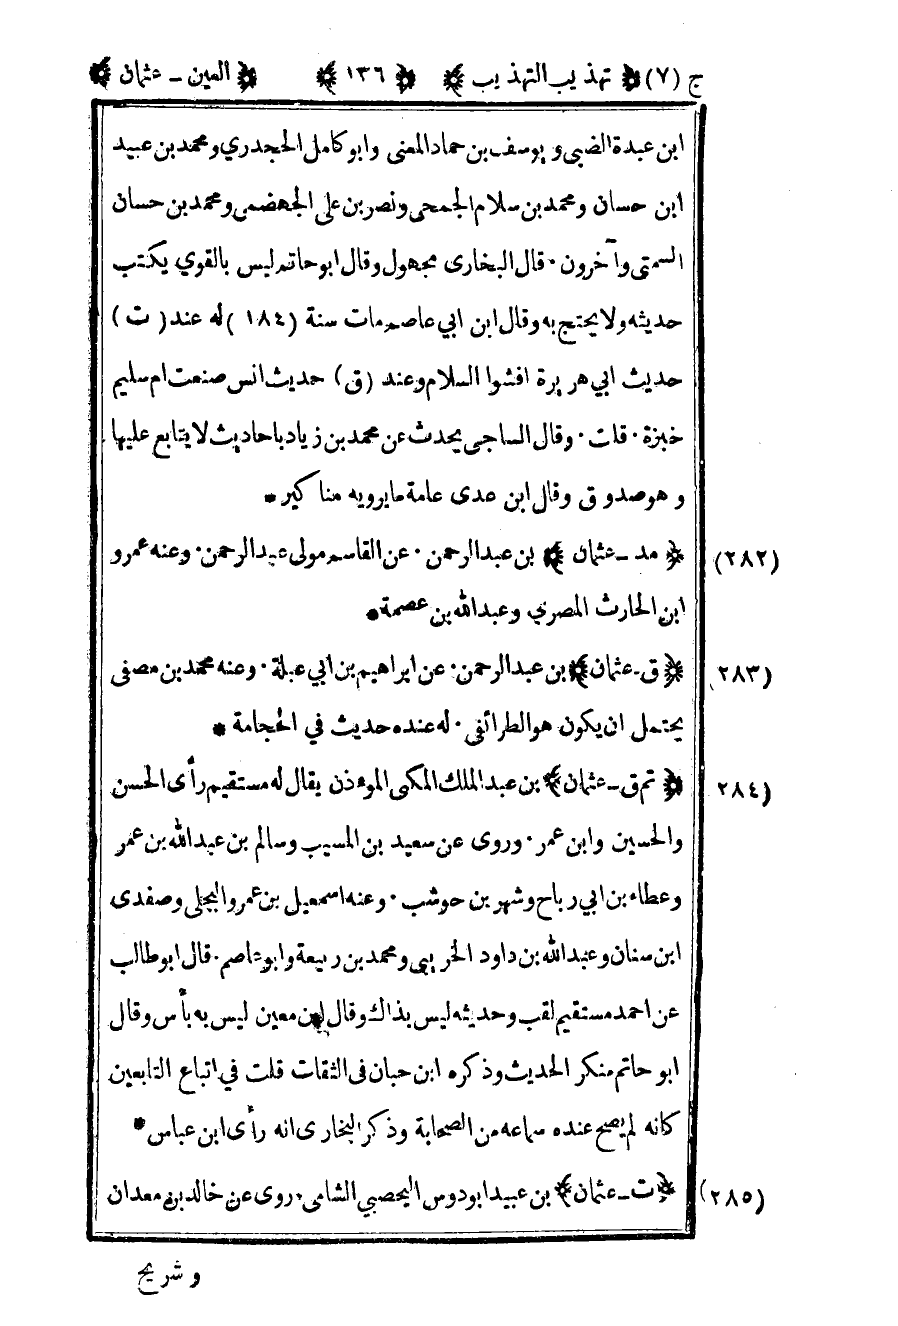 ج (٧) ﴿ تهذيب التهذيب ﴾ ﴿ ١٣٦ ﴾ ﴿ العين - عثمان ﴾
ابن عبدة الضبى و يوسف بن حماد المعنى وابو كامل الجحدري ومحمد بن عبيد
ابن حسان ومحمد بن سلام الجمحى ونصر بن على الجهضمى ومحمد بن حسان
السمتى وآخرون · قال البخارى مجهول وقال ابو حاتم ليس بالقوي يكتب
حديثه ولا يحتج به وقال ابن ابي عاصم مات سنة (١٨٤) له عند (ت)
حديث ابي هريرة افشوا السلام وعند (ق) حديث انس صنعت ام سليم
خبزة · قلت · وقال الساجى يحدث عن محمد بن زياد باحاديث لا يتابع عليها
وهو صدوق وقال ابن عدى عامة ما يرويه مناكير *
(٢٨٢) ﴿ مد - عثمان ﴾ بن عبد الرحمن · عن القاسم مولى عبد الرحمن · وعنه عمرو
ابن الحارث المصري وعبد الله بن عصمة *
(٢٨٣) ﴿ ق - عثمان ﴾ بن عبد الرحمن · عن ابراهيم بن ابي عبلة · وعنه محمد بن مصفى
يحتمل ان يكون هو الطرائفى · له عنده حديث في الحجامة *
(٢٨٤ ﴿ تم ق - عثمان ﴾ بن عبد الملك المكى الموءذن يقال له مستقيم رأى الحسن
والحسين وابن عمر · وروى عن سعيد بن المسيب وسالم بن عبد الله بن عمر
وعطاء بن ابي رباح وشهر بن حوشب · وعنه اسمعيل بن عمرو البجلى وصفدى
ابن سنان وعبد الله بن داود الخريبى ومحمد بن ربيعة وابو عاصم · قال ابو طالب
عن احمد مستقيم لقب وحديثه ليس بذاك وقال ابن معين ليس به بأس وقال
ابو حاتم منكر الحديث وذكره ابن حبان فى الثقات قلت في اتباع التابعين
كانه لم يصح عنده سماعه من الصحابة وذكر البخارى انه رأى ابن عباس *
(٢٨٥) ﴿ ت - عثمان ﴾ بن عبيد ابو دوس اليحصبي الشامى · روى عن خالد بن معدان
و شريح